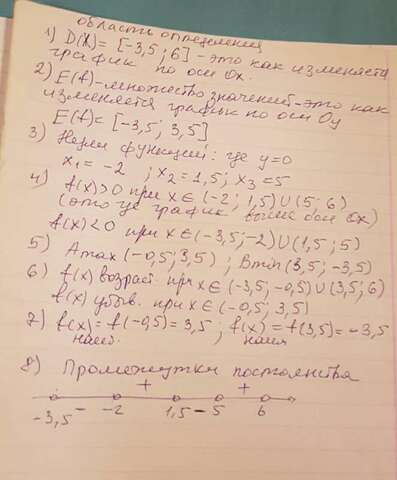 области определения
1) D(X) = [-3,5 ; 6] - это как изменяется
график по оси Ox.
2) E(f) - множество значений - это как
изменяется график по оси Oy
E(f) = [-3,5; 3,5]
3) Нули функций: где y=0
x₁ = -2 ; x₂ = 1,5; x₃ = 5
4) f(x)>0 при x∈(-2; 1,5)∪(5; 6)
(это где график выше оси Ox)
f(x)<0 при x∈(-3,5;-2)∪(1,5; 5)
5) Amax (-0,5; 3,5) ; Bmin (3,5; -3,5)
6) f(x) возраст. при x∈(-3,5; -0,5)∪(3,5; 6)
f(x) убыв. при x∈(-0,5; 3,5)
7) f(x) = f(-0,5) = 3,5 ; f(x) = f(3,5) = -3,5
наиб. наим
8) Промежутки постоянства
+ +
-3,5 - -2 1,5 - 5 6